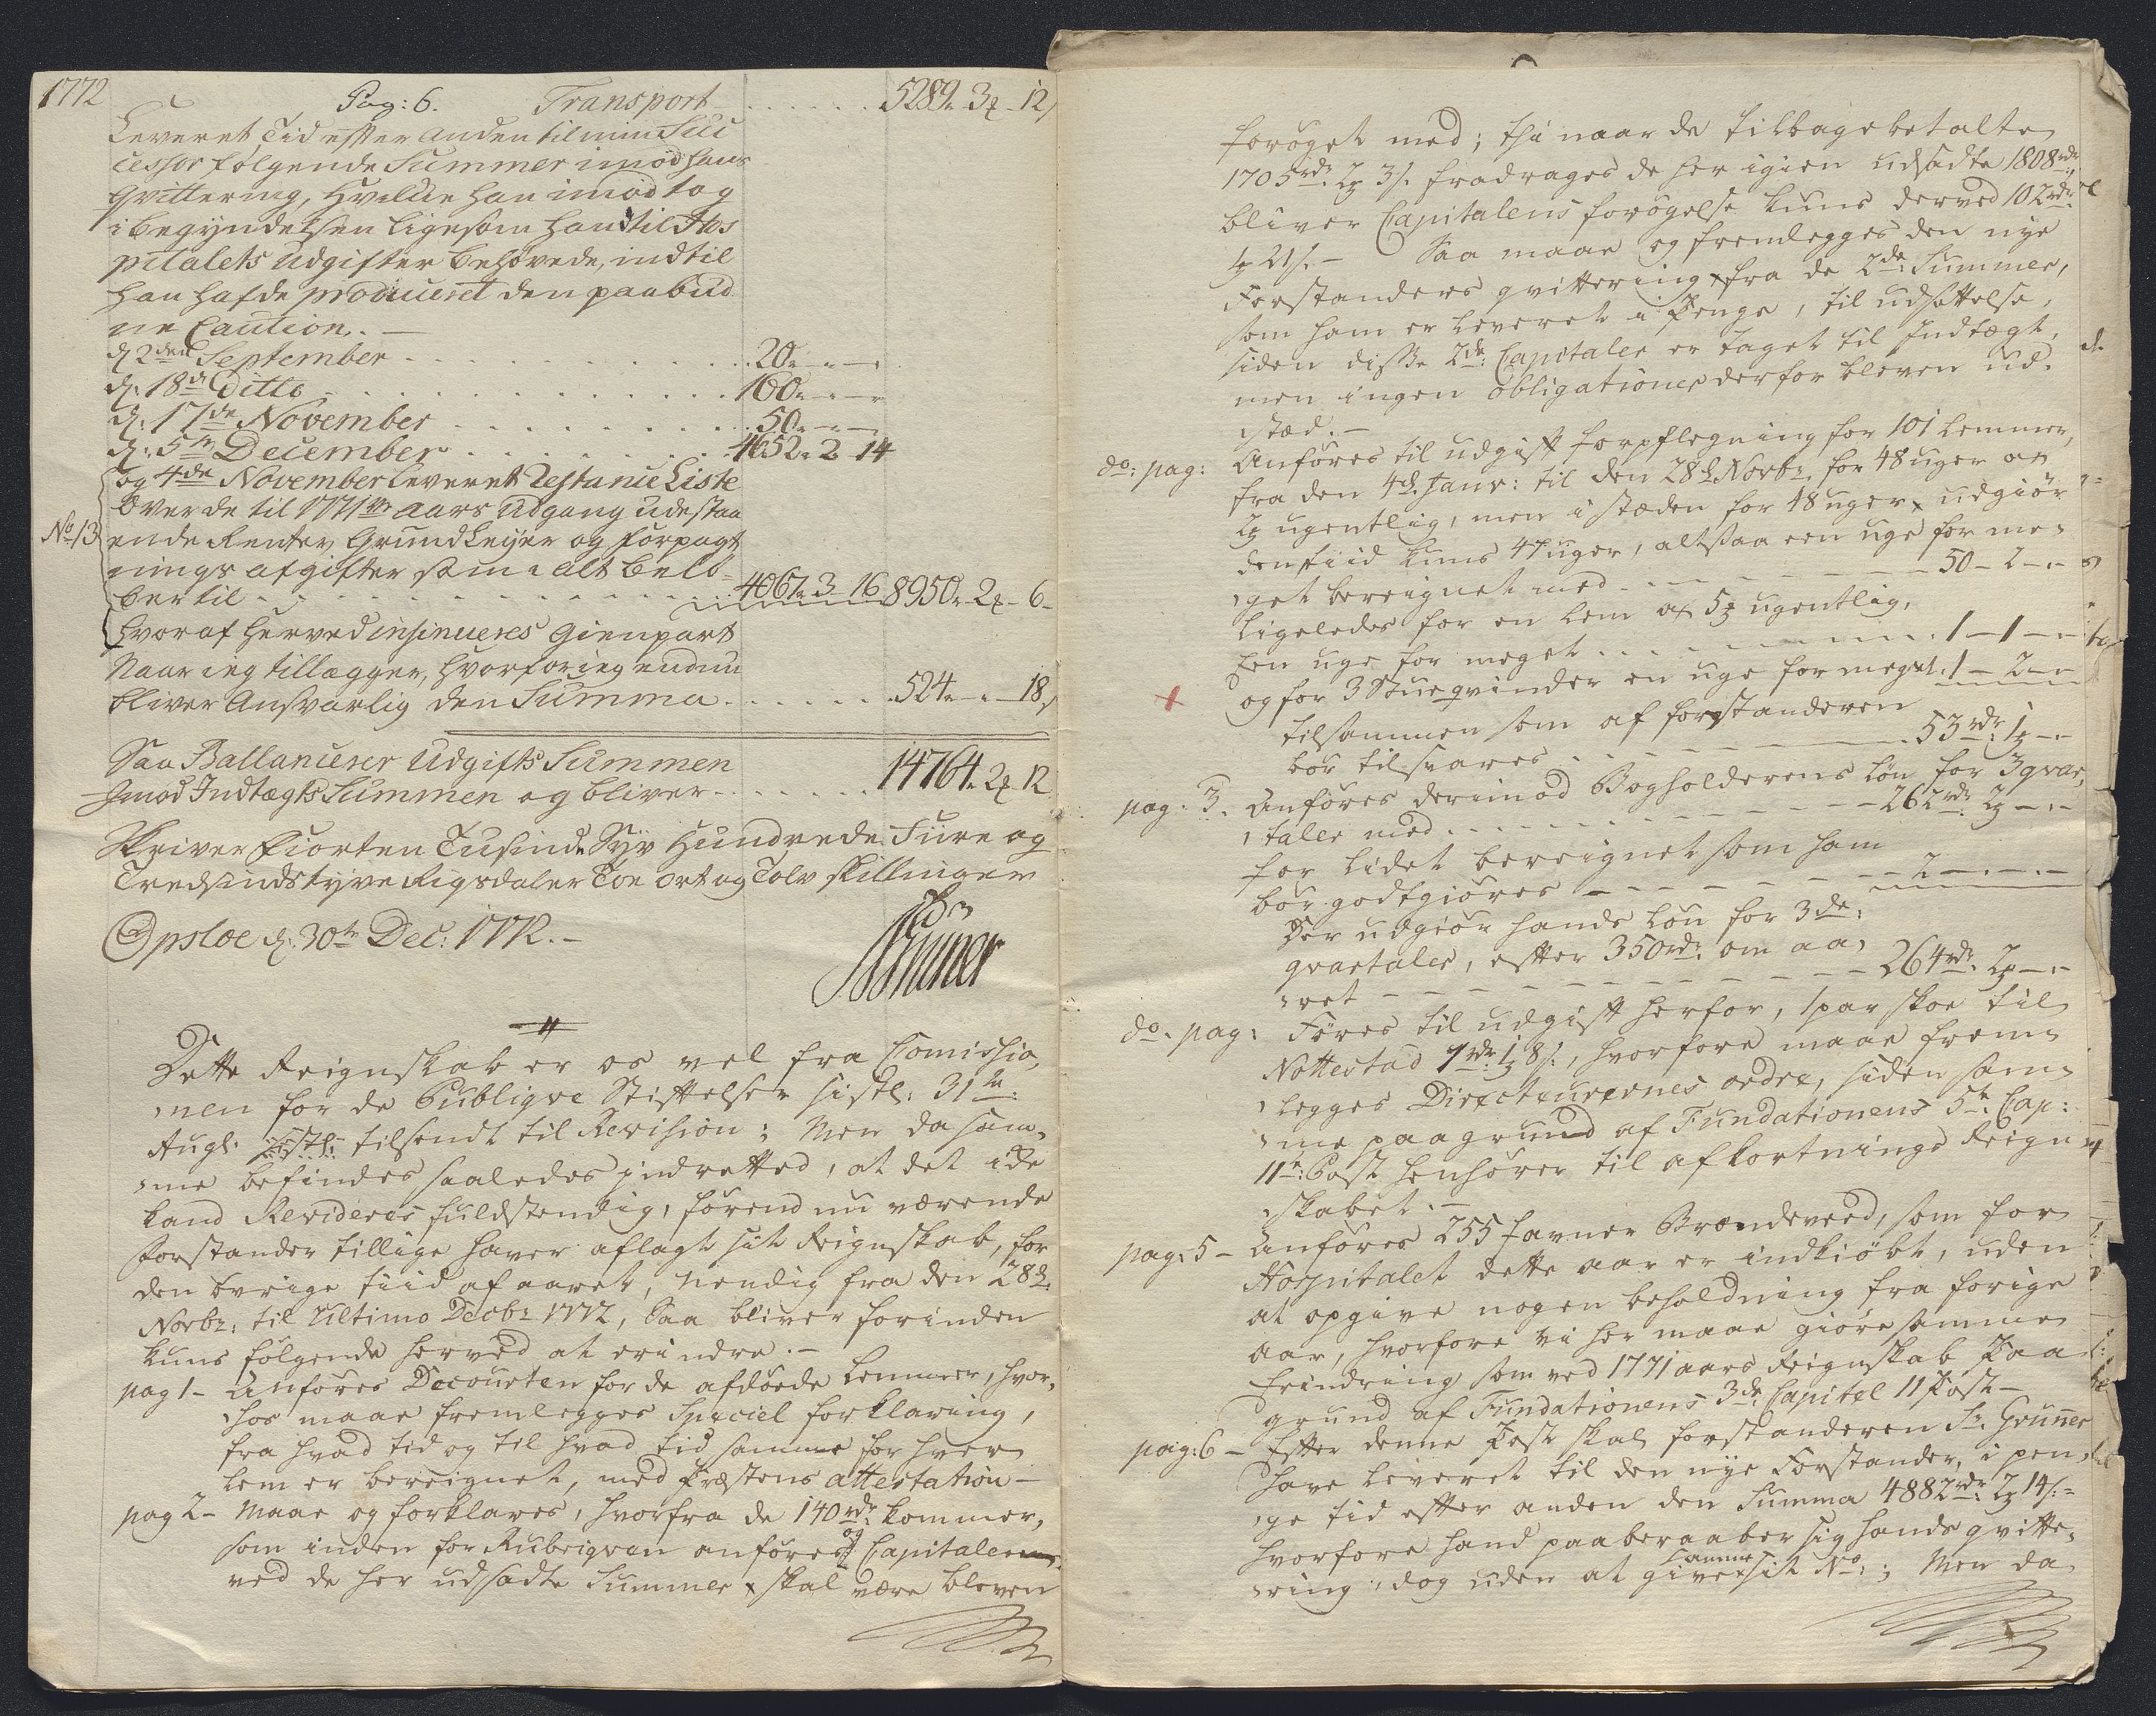 1772
Pag: 6. Transport . . . . . . 5289. 3 - 12
Leveret Tid efter anden til min Suc
cessor følgende Summer imod hans
Qvittering, hvilke han imodtog
i begyndelsen ligesom han til Hos
pitalets Udgifter behøvede, indtil
han hafde produceret den paabud
ne Caution. -
d. 2den September . . . . . . 20. - -
d: 18de Ditto . . . . . . 160. - -
d: 17de November . . . . . . 50. - -
d: 5te December . . . . . . 4652. 2 14
og 4de November leveret Restance Liste
over de til 1771 aars Udgang udestaa
No 13 ende Renter Grundleyer og forpagt
nings afgifter som i alt belø-
ber til . . . . . . 4067. 3 16 8950. 2 - 6 -
hvoraf herved insinueres Gienpart
Naar ieg tillægger, hvorfor ieg endnu
bliver Ansvarlig den Summa . . . . . . 524. - - 18
Saa Ballancerer Udgifts Summen
Imod Indtægts Summen og bliver . . . . . . 14764. 2 - 12
Skriver Fiorten Tusinde Syv Hundrede Fiire og
Tredsindstyve Rigsdaler Toe Ort og Tolv Skillinger
Opsloe d: 30te Dec: 1772. -
Gruner
Dette Reignskab er os vel fra Comissio,
nen for de Publiqve Stiftelser sistl: 31te
Augl: tilsendt til Revision; Men da sam,
me befindes saaledes indretted, at det icke
kand Revideres fuldstendig, førend nu værende
Forstander tillige haver aflagt sit Reignskab, for
den øvrige tiid af aaret, nemlig fra den 28de
Novbr. til Ultimo Decbr 1772, Saa bliver forinden
kuns følgende herved at erindre. -
pag 1 - Anføres Decourten for de afdøde Lemmer, hvor,
hos maae fremlegges Speciel forklaring,
fra hvad tid og til hvad tid samme for hver
Lem er bereignet, med Præstens attestation -
pag 2 - Maae og forklares, hvorfra de 140 rdr kommer,
som inden for Rubriqven anføres og Capitalerne
ved de her udsadte Summer skal være bleven
forøget med; thi naar de tilbagebetalte
1705 rdr. 2 3 s. fradrages de her igien udsadte 1808 rdr,
bliver Capitalens forøgelse kuns derved 102 rdr.
1 21 s. - Saa maae og fremlegges den nye
Forstanders qvittering fra de 2de Summer,
som ham er leveret i Penge, til udsættelse,
siden disse 2de: Capitaler er taget til Indtægt,
men ingen obligationer derfor bleven ud,
stæd. -
do: pag: Anføres til udgift forpflegning for 101 Lemmer,
fra den 4de Janr: til den 28de Novbr. for 48 uger a
2 ugentlig, men i stæden for 48 uger udgiør
den tiid kuns 47 uger, altsaa een uge for me,
get bereignet med . . . . . . 50 - 2 - -
Ligeledes for en Lem a 5 ugentlig,
Een uge for meget . . . . . . 1 - 1 - -
og for 3 Stueqvinder en uge for meget . 1 - 2 - -
tilsammen som af forstanderen
bør tilsvares . . . . . . 53 rdr 1 - -
pag. 3. Anføres derimod Bogholderens Løn for 3 qvar,
taler med . . . . . . 262 rdr 2 - -
for lidet bereignet som ham
bør godtgiøres - - - - - 2 - - -
Der udgiør hands Løn for 3de:
qvartaler, efter 350 rdr. om aa,
ret - - - - - - 264 rdr. 2 - -
do. pag: Føres til udgift herfor, 1 par skoe til
Nottestad 1 rdr. 1 8 s., hvorfore maae frem,
legges Directeurernes ordre, siden sam,
me paa grund af Fundationens 5te. Cap:
11te: Post henhører til afkortnings Reign,
skabet. -
pag: 5 - Anføres 255 favner Brændeveed, som for
Hospitalet dette aar er indkiøbt, uden
at opgive nogen beholdning fra forige
aar, hvorfore vi her maae giøre samme
Erindring som ved 1771 aars Reignskab paa
grund af Fundationens 3de: Capitel 11 Post -
pag: 6 - Efter denne Post skal forstanderen Sr. Gruner
have leveret til den nye Forstander, i pen,
ge tid efter anden den Summa 4882 rdr. 2 14 s. -
hvorfore hand paaberaaber sig hands qvitte,
ring, dog uden at give samme sit No: ; Men da